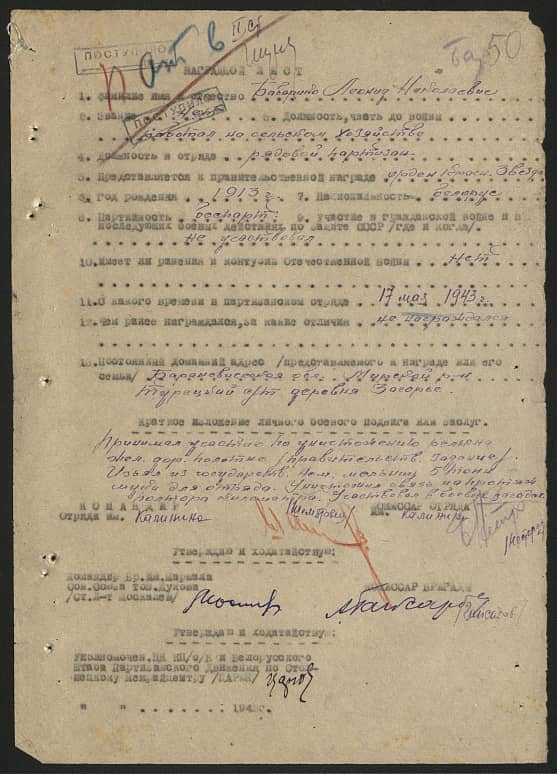 50
ПОСТУПИЛО
НАГРАДНОЙ ЛИСТ
1. Фамилия имя и отчество Леонид Николаевич
2. Звание 3. Должность, часть до войны
работал на сельском хозяйстве
4. Должность в отряде рядовой партизан
5. Представляется к правительственной награде орден Красн. Звезда
6. Год рождения 1913 г. 7. Национальность белорус
8. Партийность беспарт. 9. Участие в гражданской войне и в
последующих боевых действиях по защите СССР /где и когда/.
не участвовал
10. Имеет ли ранения и контузии Отечественной войны нет
11. С какого времени в партизанском отряде 17 мая 1943 г.
12. Чем ранее награждался, за какие отличия не награждался
13. Постоянный домашний адрес /представляемого к награде или его
семьи/ Барановичская обл. Мирский р-н
Турецкий с/т деревня Загорье.
Краткое изложение личного боевого подвига или заслуг.
Принимал участие по уничтожению рельс на
жел. дор. полотне /правительств. задание/.
Изъял из государств. нем. мельниц 5 тонн
муки для отряда. Уничтожил связь на протяж.
полтора километра. Участвовал в боевых засадах.
КОМАНДИР КОМИССАР ОТРЯДА
Отряда им. Калинина им. Калинина
Утверждаю и ходатайствую:
Командир Бр. им.
Сов. Союза тов. Жукова КОМИССАР БРИГАДЫ
/Ст. л-т Москалев/
Утверждаю и ходатайствую:
Уполномочен. ЦК КП/б/Б и Белорусского
Штаба Партизанского Движения по Стол-
пецкому межрайцентру /ЦАРЮК/
" " 194 г.